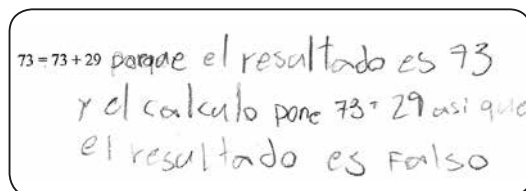 73 = 73 + 29 porque el resultado es 73
y el calculo pone 73+29 asi que
el resultado es Falso